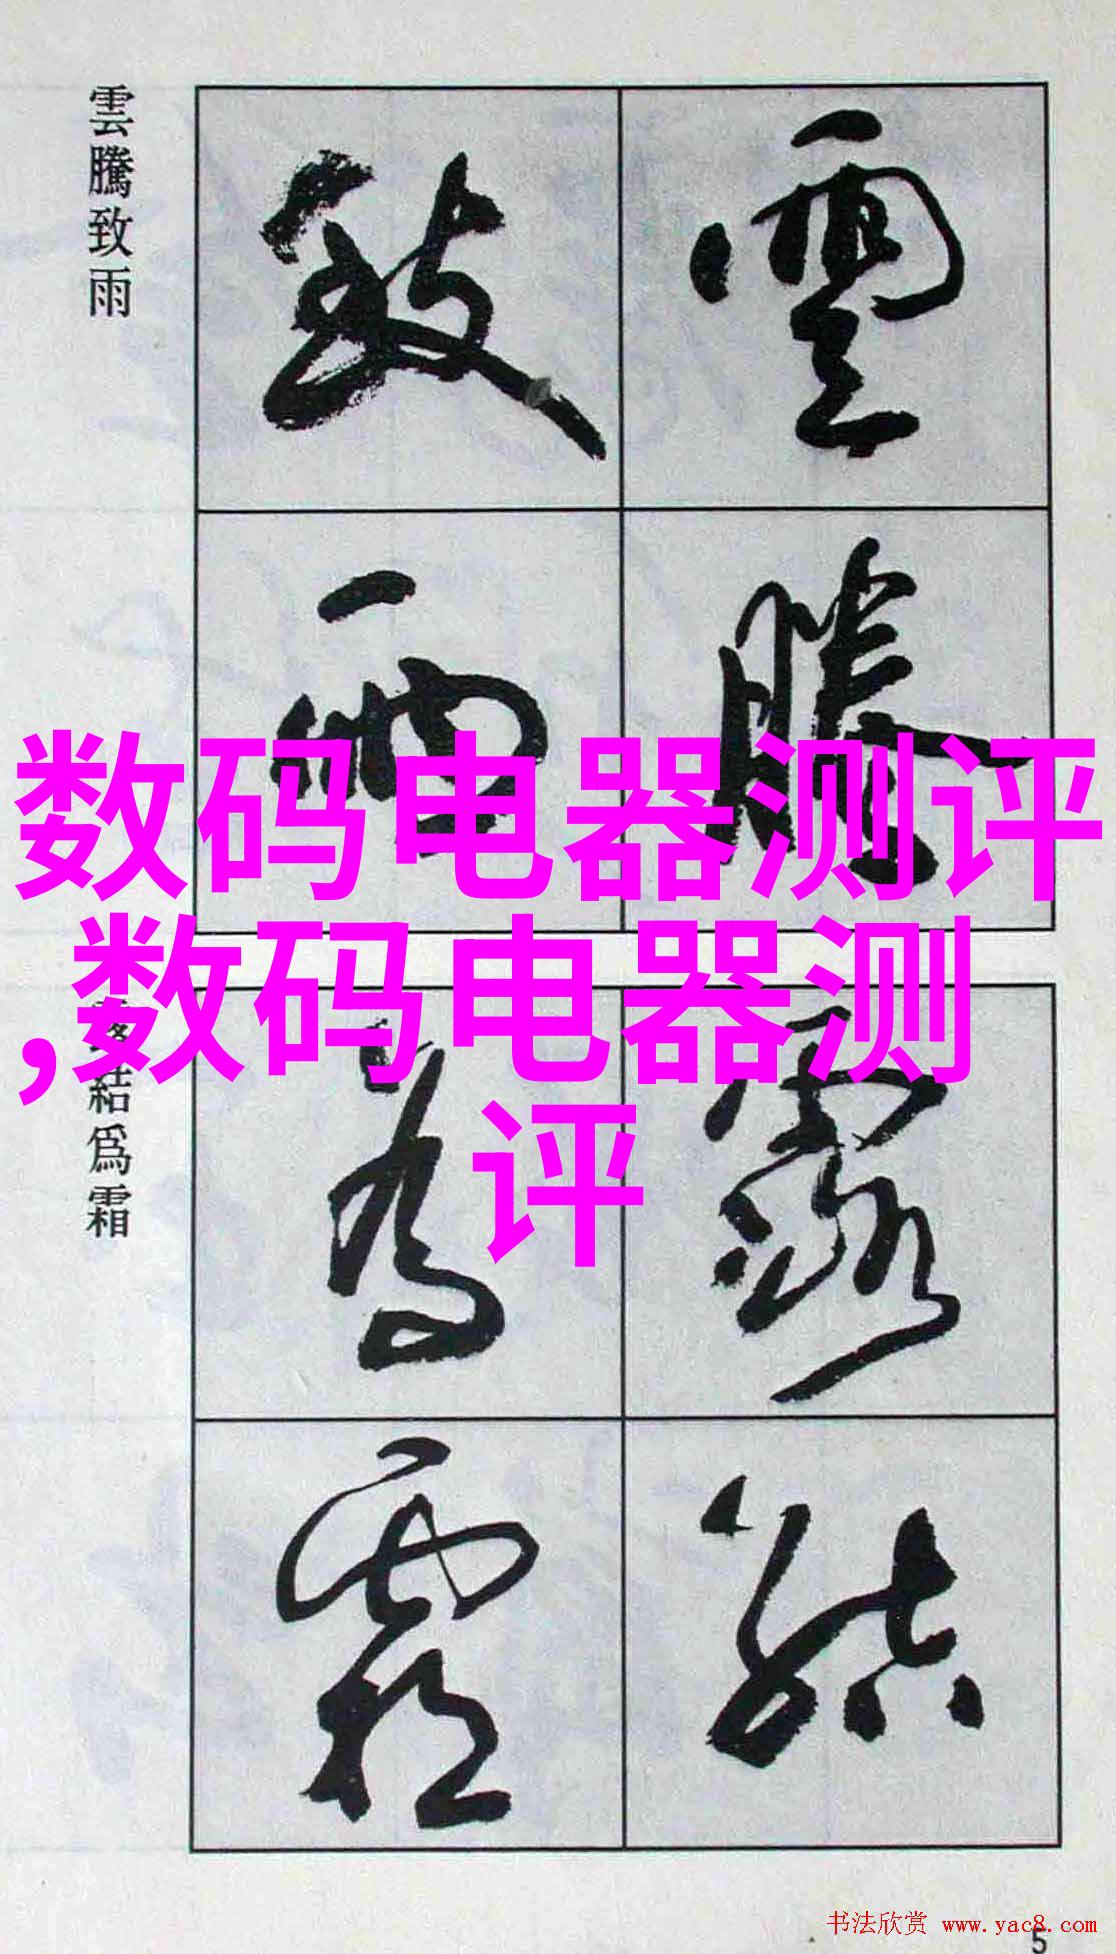 雲騰致雨
雲騰
致雨
数码电器测评
,数码电器测
评
結爲霜
露結
爲霜
书法欣赏 www.yac8.com
5